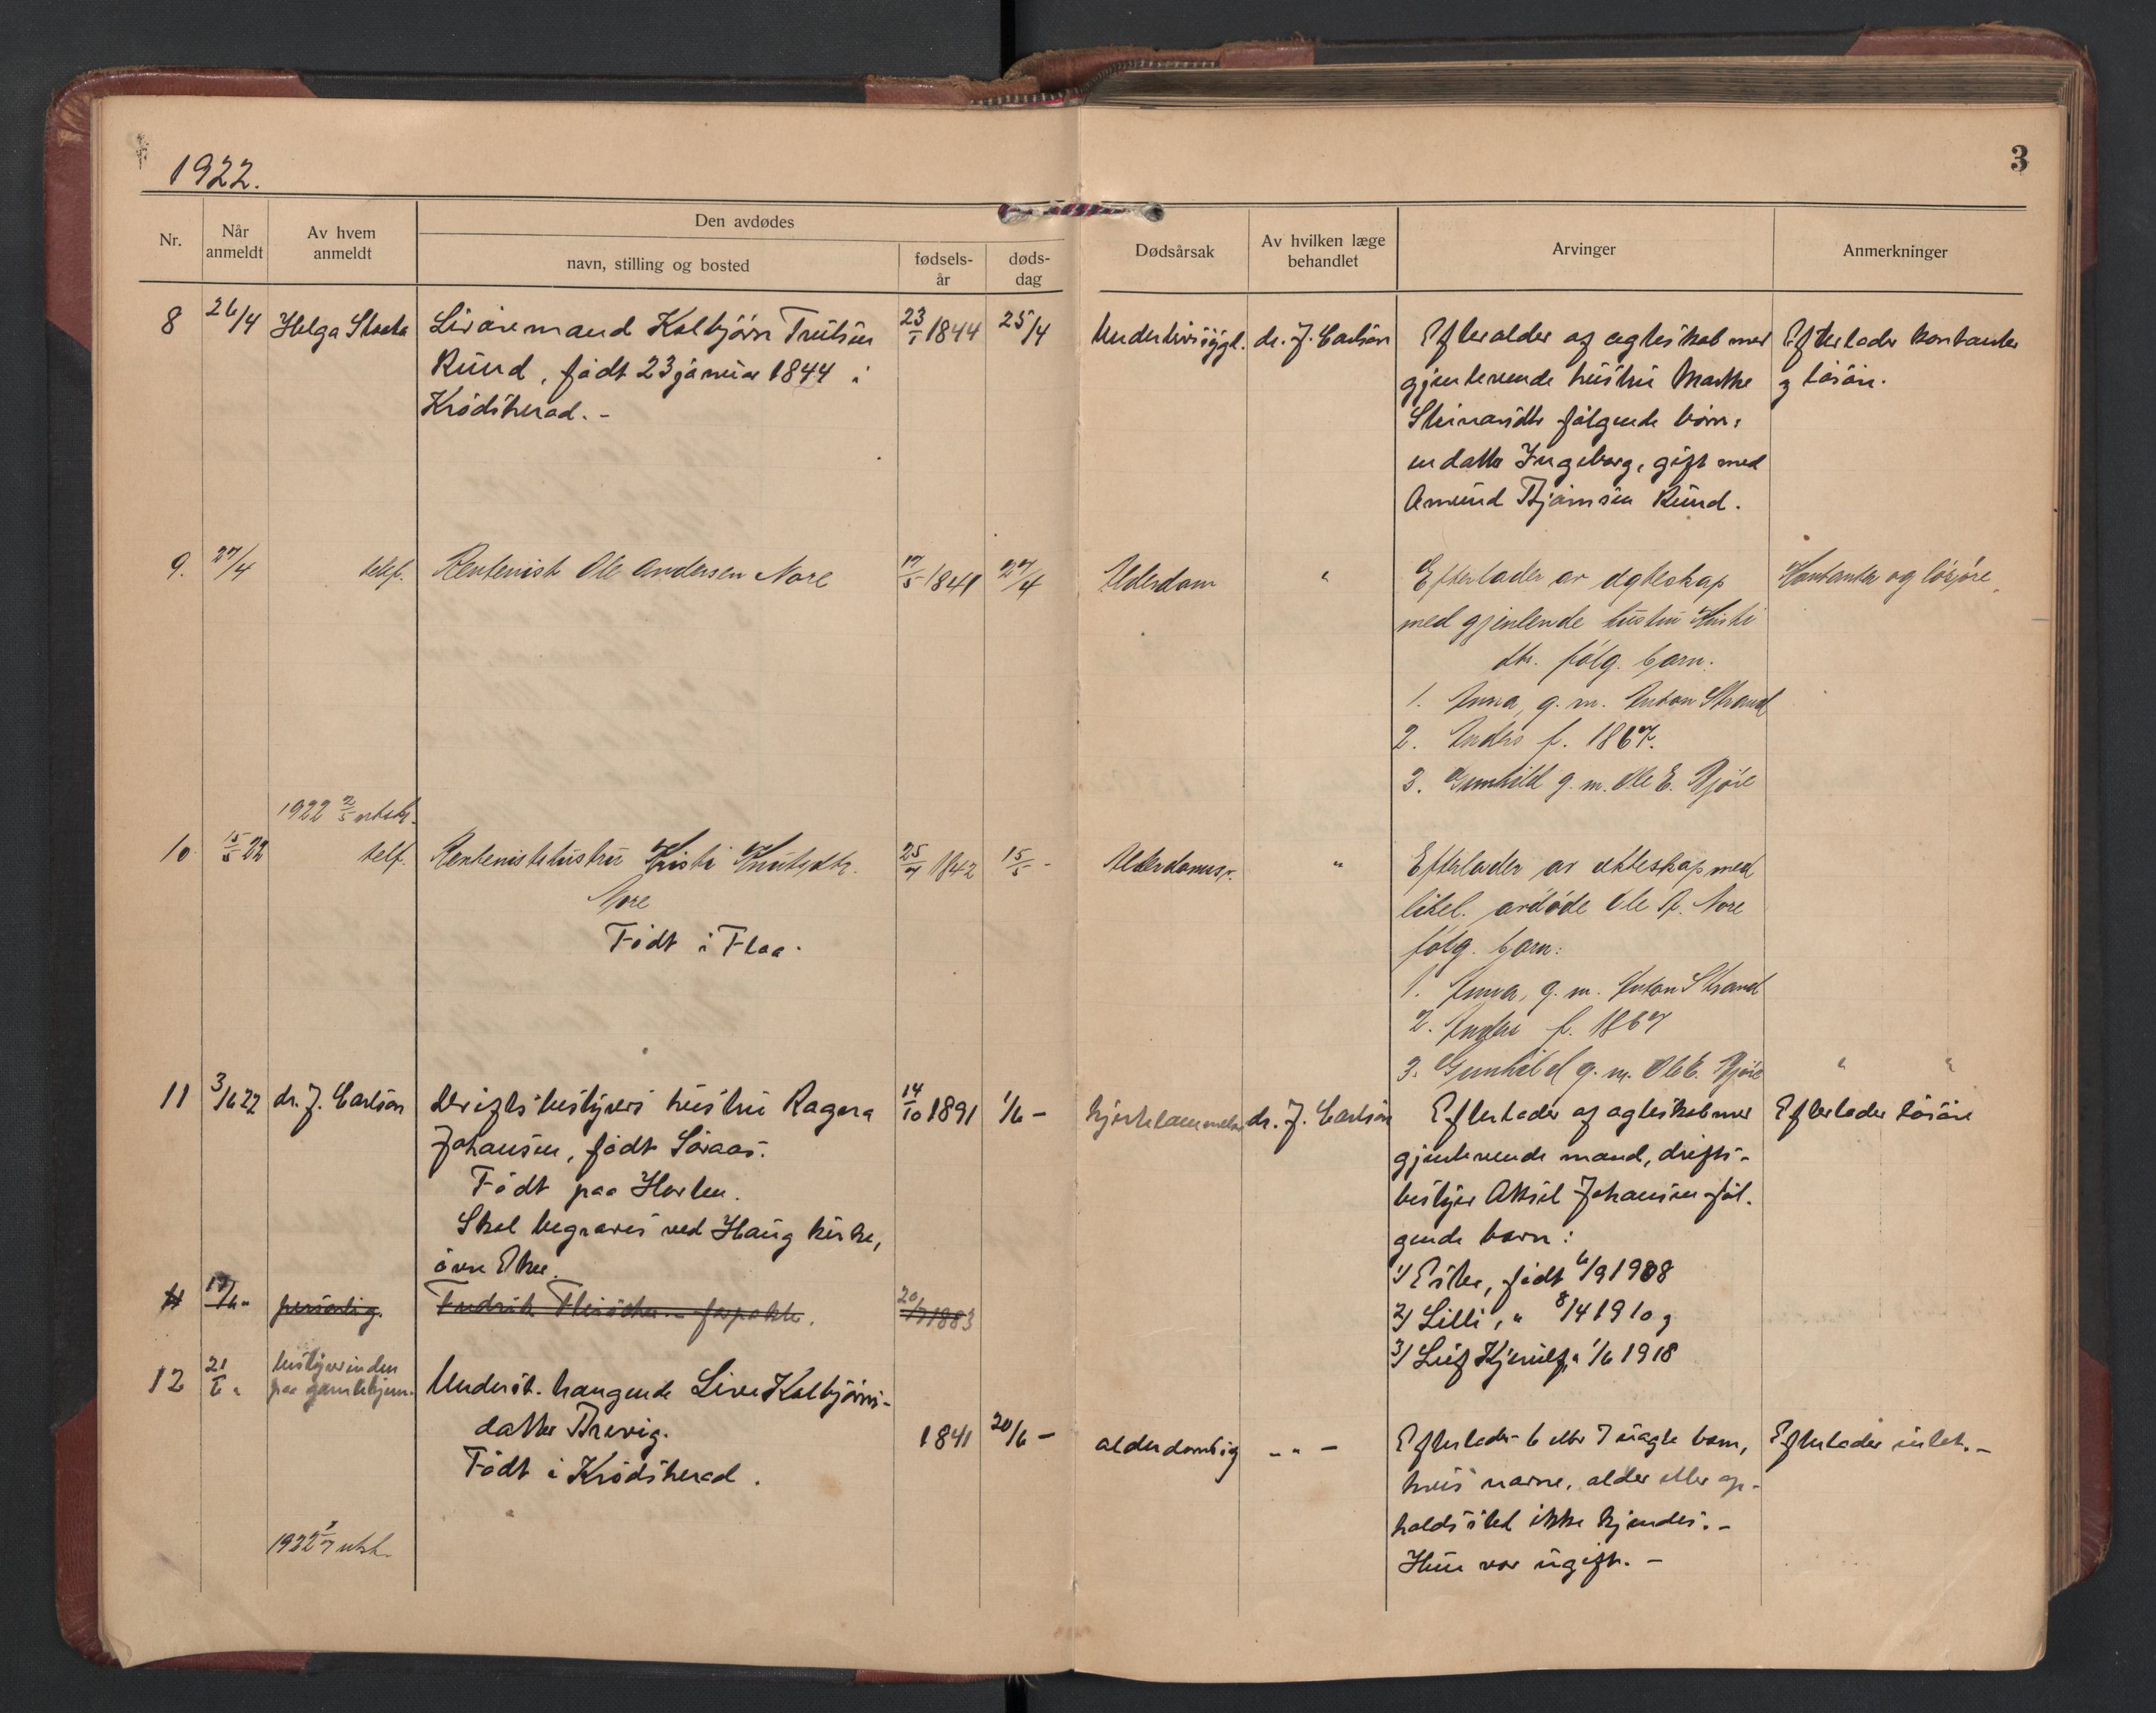 1922.
3
Nr.
Når anmeldt
Av hvem anmeldt
Den avdødes
navn, stilling og bosted
fødsels-år
døds-dag
Dødsårsak
Av hvilken læge behandlet
Arvinger
Anmerkninger
8 26/4 Helga
Livøremand Kolbjørn Trulsen
Rund, født 23 januar 1844 i
Krødsherad. -
23/1 1844 25/4
Underlivssygd. dr. J. Carlson
Efterlader af ægteskab med
gjenlevende hustru Marthe
Steinarsdtr følgende børn:
en datter Ingeborg, gift med
Amund Bjørnsen Rund.
Efterlader kontanter
og løsøre.
9. 27/4 telf. Rentenist Ole Andersen Nore 17/5 1841 27/4
Alderdom "
Efterlader av egteskap
med gjenlevende hustru Kristi
dtr. følg. barn:
1. Anna, g. m. Anton Strand
2. Anders f. 1867.
3. Gunhild g. m. Ole E. Bjøre
Kontanter og løsøre.
1922 2/5 utskr.
10 15/5 22 telf. Rentenisthustru Kristi Knutsdtr.
Nore
Født i Flaa.
25/7 1842 15/5 -
Alderdomssv. "
Efterlader av ekteskap med
tidl. avdøde Ole A. Nore
følg. barn:
1. Anna, g. m. Anton Strand
2. Anders f. 1867
3. Gunhild g. m. Ole E. Bjøre " "
11 3/6 22 dr. J. Carlson Driftsbestyrers hustru Ragna
Johansen, født Søraas.
Født paa Horten.
Skal begraves ved Haug kirke,
øvre Eker.
14/10 1891 1/6 -
Hjertelammelse dr. J. Carlson
Efterlader af ægteskab med
gjenlevende mand, drifts-
bestyrer Aksel Johansen føl-
gende barn:
1/ Ester, født 6/9 1908
2/ Lilli, " 8/4 1910 og
3/ Leif Kjerulf, " 1/6 1918
Efterlader løsøre
11 17/6 " personlig. Fredrik forpakter. 20/7 1883
12 21/6 " bestyrerinden
paa gamlehjem.
Underst. trængende Live Kolbjørns-
datter Brevig.
Født i Krødsherad.
1841 20/6 -
alderdomssvag - " -
Efterlader 6 eller 7 uægte barn,
hvis navne, alder eller op-
holdssted ikke kjendes. -
Hun var ugift. -
Efterlader intet. -
1922 3/7 utskr.